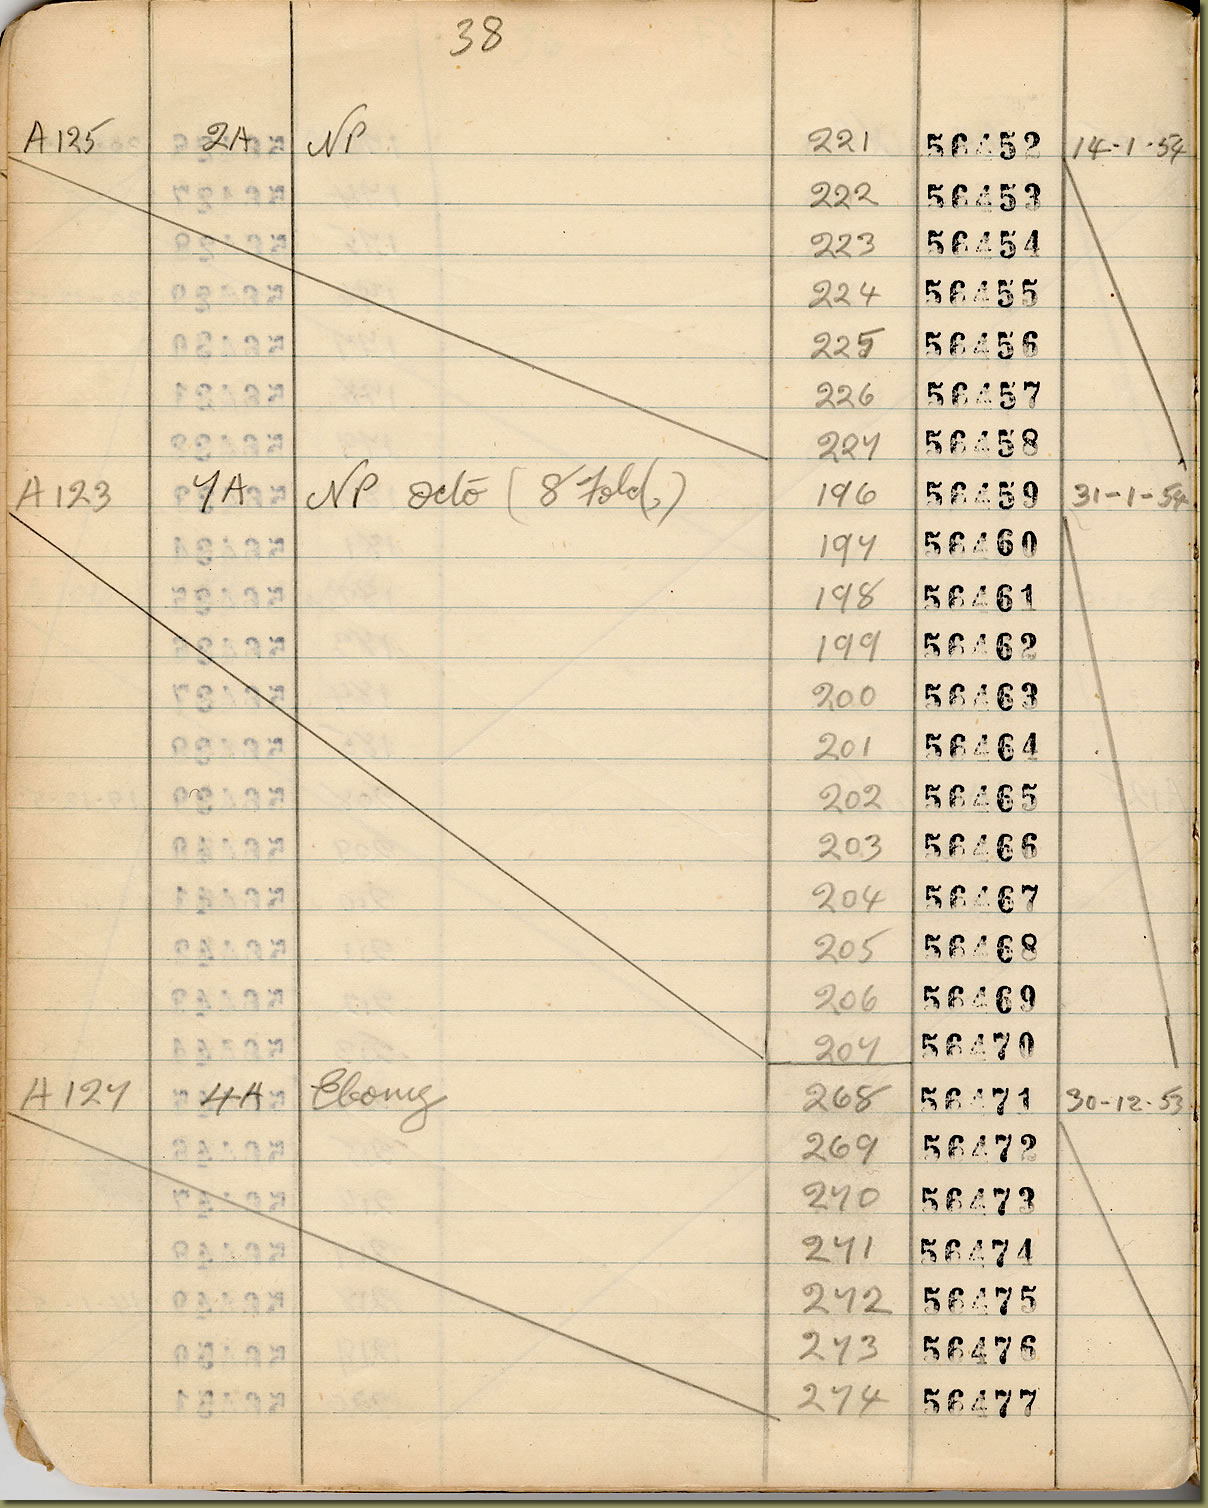 38
A125 2A NP 221 56452 14-1-54
222 56453
223 56454
224 56455
225 56456
226 56457
227 56458
A123 7A NP octo (8 fold,) 196 56459 31-1-54
197 56460
198 56461
199 56462
200 56463
201 56464
202 56465
203 56466
204 56467
205 56468
206 56469
207 56470
A127 4A Ebony 268 56471 30-12-53
269 56472
270 56473
271 56474
272 56475
273 56476
274 56477